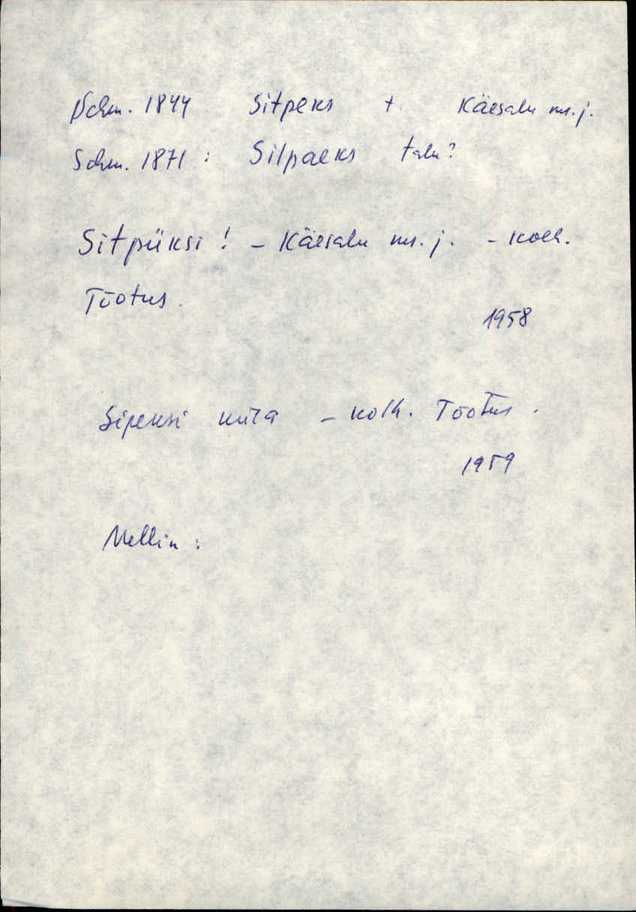 Schm. 1844 Sitpeks + Käesalu ms. j.
Schm. 1871 : Silpaeks talu?
Sitpüksi ! - Käesalu ms. j. - kolh.
Tõotus.
1958
Sipeksi küla - kolh. Tõotus.
1959
Mellin :